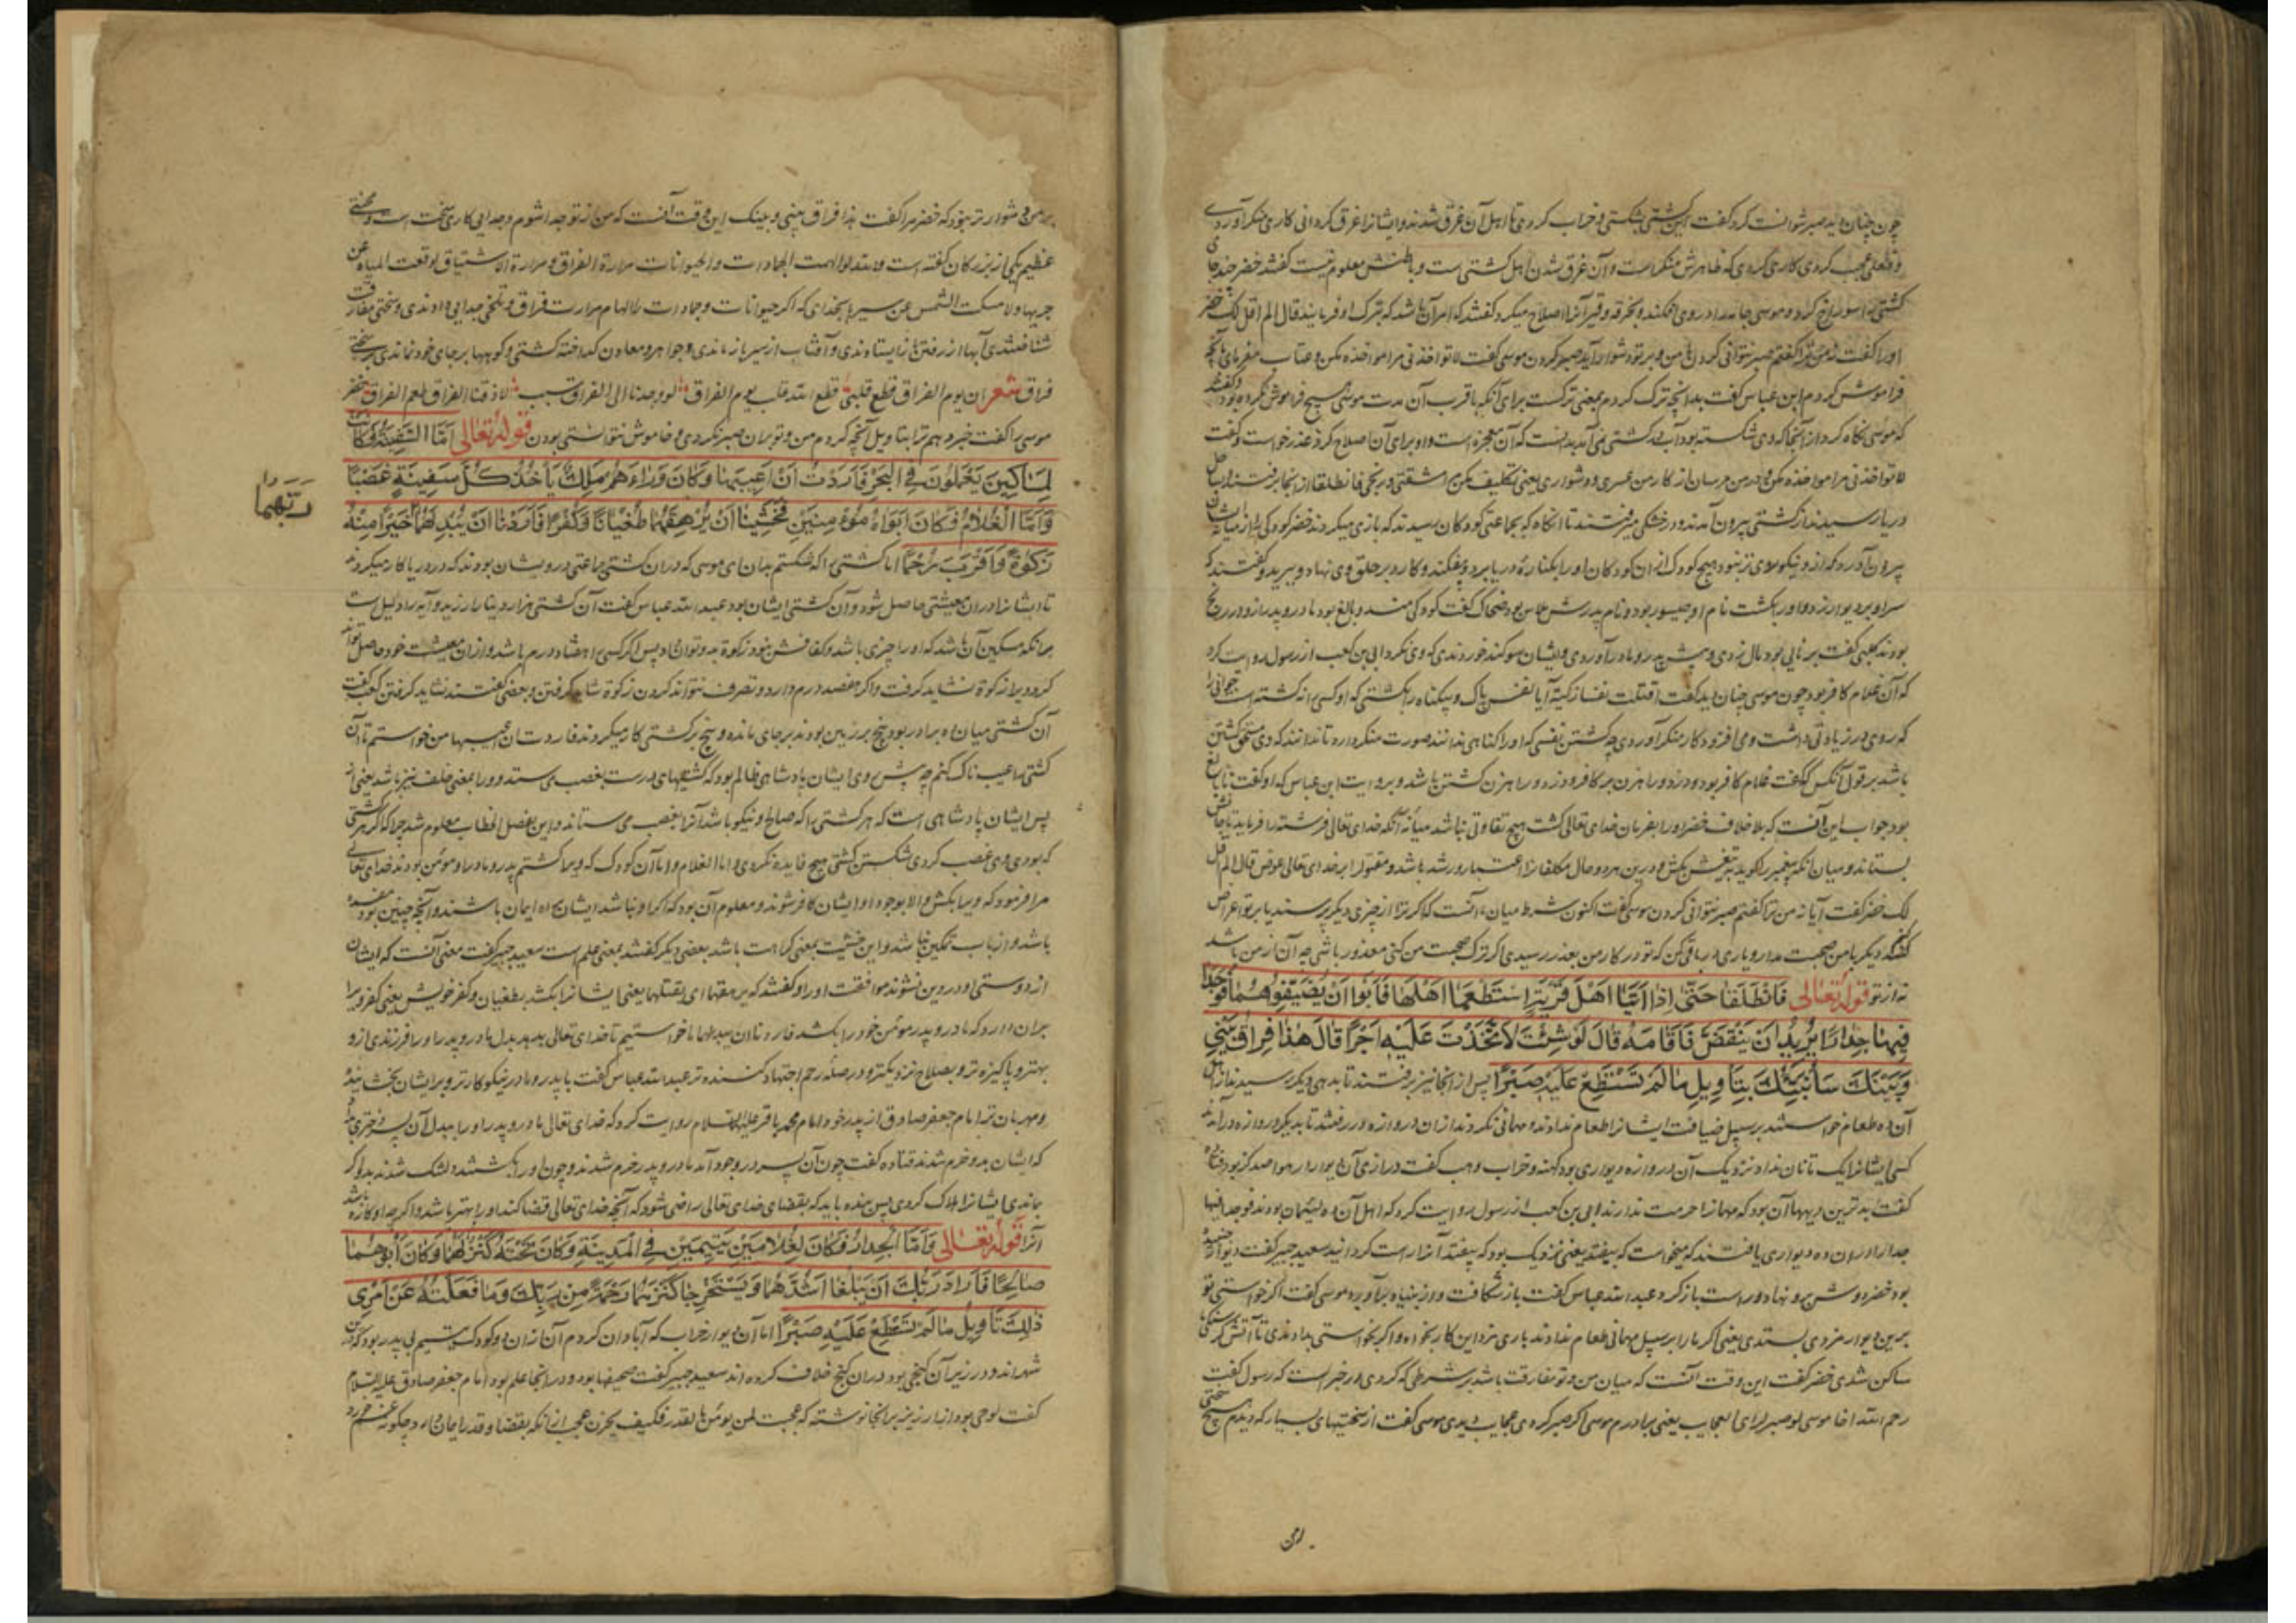 چون چنان دید صبر نتوانست کرد گفت این کشتی بشکستی و خراب کردی تا اهل آن غرق شدند و ایشانرا غرق کردانی کاری منکر آوردی
و فعلی عجب کردی کاری کردی که ظاهرش منکر است و آن غرق شدن اهل کشتی است و باطنش معلوم نیست گفتند خضر چند جای
کشتی را سوراخ کرد و موسی جامه در روی افکند و بخرقه و قیر آنرا اصلاح میکرد گفتند که امر آن باشد که بترک او فرمایند قال الم اقل لک خضر
اورا گفت نه من ترا گفتم صبر نتوانی کردن با من و بر تو دشوار آید صبر کردن موسی گفت لا تواخذنی مرا مواخذه مکن و عتاب مفرمای بآنچه
فراموش کردم ابن عباس گفت بدانچه ترک کردم یعنی ترکت برای آنکه با قرب آن مدت موسی هیچ فراموش نکرده بود و گفتند
که موسی نگاه کرد از آنجا که وی شکسته بود آب در کشتی نمی آمد بدانست که آن معجزه است و او برای آن صلاح کرد عذر خواست و گفت
لا تواخذنی مرا مواخذه مکن و در من مرسان از کار من عسری و دشواری یعنی تکلیف مکن مرا مشقتی و رنجی فانطلقا از آنجا برفتند و بساحل
دریا رسیدند از کشتی بیرون آمدند و در خشکی میرفتند تا آنگاه که بجماعتی کودکان رسیدند که بازی میکردند خضر کودکی را از میان ایشان
بیرون آورد که از و نیکو روی تر نبود هیچ کودک از آن کودکان اورا بکناره دریا برد و بیفکند و کارد بر حلق وی نهاد و ببرید و گفتند که
سر او بر دیوار زد و اورا بکشت نام او جیسور بود و نام پدرش ملاس بود ضحاک گفت کودکی مفسد و بالغ بود مادر و پدر از و در رنج
بودند کلبی گفت برنایی بود مال دزدی و پیش پدر و مادر آوردی و ایشان سوکند خوردندی که وی نکرد ابی بن کعب از رسول روایت کرد
که آن غلام کافر بود چون موسی چنان دید گفت اقتلت نفسا زکیة آیا نفس پاک و بیگناه را بکشتی که او کسی را نکشته است جوانی را
باشد بر قول آنکس که گفت غلام کافر بود و دزد و راهزن بر کافر و دزد و راهزن کشتن باشد و بروایت ابن عباس که او گفت نابالغ
بود جواب این آنست که بلا خلاف خضر اورا بفرمان خدای تعالی کشت هیچ تفاوتی نباشد میانه آنکه خدای تعالی فرشته را فرماید تا جانش
بستاند و میان آنکه پیغمبر را گوید بتیغش بکش و درین هر دو حال مکلفانرا اعتبار و رشد باشد و مقتول را بر خدای تعالی عوض قال الم اقل
لک خضر گفت آیا نه من ترا گفتم صبر نتوانی کردن موسی گفت اکنون شرط میان ما آنست که اگر ترا از چیزی دیگر پرسند یا بر تو اعراض
کنند دیگر با من صحبت مدار و یاری در باقی کن که تو در کار من بعذر رسیدی اگر ترک صحبت من کنی معذور باشی چه آن از من باشد
نه از تو قوله تعالی فَانْطَلَقَا حَتّٰى اِذَا اَتَيَا اَهْلَ قَرْيَةٍ اسْتَطْعَمَا اَهْلَهَا فَاَبَوْا اَنْ يُضَيِّفُوهُمَا فَوَجَدَا
فِيهَا جِدَارًا يُرِيدُ اَنْ يَنْقَضَّ فَاَقَامَهُ قَالَ لَوْ شِئْتَ لَاتَّخَذْتَ عَلَيْهِ اَجْرًا قَالَ هٰذَا فِرَاقُ بَيْنِي
وَبَيْنِكَ سَاُنَبِّئُكَ بِتَاْوِيلِ مَا لَمْ تَسْتَطِعْ عَلَيْهِ صَبْرًا پس از آنجا نیز برفتند تا بدهی دیگر رسیدند از اهل
آن ده طعام خواستند بر سبیل ضیافت ایشانرا طعام ندادند و مهمانی نکردند از آن دروازه در رفتند تا بدیگر دروازه در آمدند
کسی ایشانرا یک تا نان نداد نزدیک آن دروازه دیواری بود کهنه و خراب وهب گفت درازی آن دیوار در هوا صد گز بود قتاده
گفت بدترین دیهها آن بود که مهمانرا حرمت ندارند ابی بن کعب از رسول روایت کرد که اهل آن ده لئیمان بودند فوجدا فیها
جدارا در آن ده دیواری یافتند که میخواست که بیفتد یعنی نزدیک بود که بیفتد آنرا راست کردانید سعید جبیر گفت دیوار خمیده
بود خضر دوش برو نهاد و راست باز کرد عبد الله عباس گفت باز شکافت و از بنیاد برآورد موسی گفت اگر خواستی تو
برین دیوار مزدی بستدی یعنی اگر ما را بر سبیل مهمانی طعام ندادند باری مزد این کار بخواه و اگر بخواستی بدادندی تا آتش گرسنگی ما
ساکن شدی خضر گفت این وقت آنست که میان من و تو مفارقت باشد بر شرطی که کردی و در خبر است که رسول گفت
رحم الله اخا موسی لو صبر لرای العجایب یعنی برادرم موسی اگر صبر کردی عجایب دیدی موسی گفت از سختیهای بسیار که دیدم هیچ سختی
بر من دشوار تر نبود که خضر مرا گفت هذا فراق بینی و بینک این وقت آنست که من از تو جدا شوم و جدایی کاری سخت است و محنتی
عظیم یکی از بزرگان گفته است والله لو الهمت الجمادات والحیوانات مرارة الفراق و مرارة الاشتیاق لوقعت المیاه عن
جریها ولا مسکت الشمس عن سیرها بخدای که اگر حیوانات و جمادات را الهام مرارت فراق و تلخی جدایی دادندی و سختی مفارقت
شناختندی آبها از رفتن باز ایستادندی و آفتاب از سیر باز ماندی و جواهر و معادن گداخته گشتی و کوهها بر جای خود نماندی بر سختی
فراق شعر ان یوم الفراق قطع قلبی قطع الله قلب یوم الفراق لو وجدنا الی الفراق سبیب لاذقنا الفراق طعم الفراق خضر
موسی را گفت خبر دهم ترا بتاویل آنچه کردم من و تو بر آن صبر نکردی و خاموش نتوانستی بودن قوله تعالی اَمَّا السَّفِينَةُ فَكَانَتْ
لِمَسَاكِينَ يَعْمَلُونَ فِي الْبَحْرِ فَاَرَدْتُ اَنْ اَعِيبَهَا وَكَانَ وَرَاءَهُمْ مَلِكٌ يَاْخُذُ كُلَّ سَفِينَةٍ غَصْبًا
وَاَمَّا الْغُلَامُ فَكَانَ اَبَوَاهُ مُؤْمِنَيْنِ فَخَشِينَا اَنْ يُرْهِقَهُمَا طُغْيَانًا وَكُفْرًا فَاَرَدْنَا اَنْ يُبْدِلَهُمَا خَيْرًا مِنْهُ
رَبُّهُمَا
زَكٰوةً وَاَقْرَبَ رُحْمًا اما کشتی را که شکستم بدان ای موسی که در آن کشتی جماعتی درویشان بودند که در دریا کار میکردند
تا ایشانرا در آن معیشتی حاصل شود و آن کشتی ایشان بود عبد الله عباس گفت آن کشتی هزار دینار ارزید و آیه را دلیل است
برآنکه مسکین آن باشد که اورا چیزی باشد و کفافش نبود زکوة بدو توان داد پس اگر کسی را هفتاد درم باشد و از آن معیشت خود حاصل تواند
آن کشتی میان ده برادر بود پنج بر زمین بودند بر جای مانده و پنج در کشتی کار میکردند فاردت ان اعیبها من خواستم تا آن
کشتی را عیب ناک کنم چه پیش روی ایشان پادشاهی ظالم بود که کشتیهای درست بغصب می ستد و ورا بمعنی خلف نیز باشد یعنی از
پس ایشان پادشاهی است که هر کشتی را که صالح و نیکو باشد آنرا بغصب می ستاند و این بفصل الخطاب معلوم شد چرا که اگر هر کشتی
که بودی وی غصب کردی شکستن کشتی هیچ فایده نکردی و اما الغلام و اما آن کودک که ویرا کشتم پدر و مادر او مؤمن بودند خدای تعالی
مرا فرمود که ویرا بکش و الا بوجود او ایشان کافر شوند و معلوم آن بود که اگر او نباشد ایشان بر راه ایمان باشند و آنچه چنین بود مفسده
باشد و از باب تمکین نباشد و این خشیت بمعنی کراهت باشد بعضی دیگر گفتند بمعنی علم است سعید جبیر گفت معنی آنست که ایشان
از دوستی او در دین نشوند موافقت اورا و گفتند که یرهقهما ای یقتلهما یعنی ایشانرا بکشد بطغیان و کفر خویش یعنی کفر ویرا
بر آن دارد که مادر و پدر مؤمن خود را بکشد فاردنا ان یبدلهما ما خواستیم تا خدای تعالی بدهد بدل مادر و پدر اورا فرزندی از و
بهتر و پاکیزه تر و بصلاح نزدیکتر و در صله رحم اجتهاد کننده تر عبد الله عباس گفت با پدر و مادر نیکو کارتر و بر ایشان بخشاینده
و مهربان تر امام جعفر صادق از پدر خود امام محمد باقر علیه السلام روایت کرد که خدای تعالی مادر و پدر اورا ببدل آن پسر دختری داد
که ایشان بدو خرم شدند قتاده گفت چون آن پسر در وجود آمد مادر و پدر خرم شدند و چون اورا بکشتند دلتنگ شدند و اگر
ماندی ایشانرا هلاک کردی پس بنده باید که بقضای خدای تعالی راضی شود که آنچه خدای تعالی قضا کند اورا بهتر باشد و اگر چه او کاره باشد
آنرا قوله تعالی وَاَمَّا الْجِدَارُ فَكَانَ لِغُلَامَيْنِ يَتِيمَيْنِ فِي الْمَدِينَةِ وَكَانَ تَحْتَهُ كَنْزٌ لَهُمَا وَكَانَ اَبُوهُمَا
صَالِحًا فَاَرَادَ رَبُّكَ اَنْ يَبْلُغَا اَشُدَّهُمَا وَيَسْتَخْرِجَا كَنْزَهُمَا رَحْمَةً مِنْ رَبِّكَ وَمَا فَعَلْتُهُ عَنْ اَمْرِي
ذٰلِكَ تَاْوِيلُ مَا لَمْ تَسْطِعْ عَلَيْهِ صَبْرًا اما آن دیوار خراب که آبادان کردم آن از آن دو کودک یتیم بی پدر بود که درین
شهراند و در زیر آن گنجی بود در آن گنج خلاف کرده اند سعید جبیر گفت صحیفها بود و در آنجا علم بود امام جعفر صادق علیه السلام
گفت لوحی بود از زر برآنجا نوشته که عجبت لمن یؤمن بالقدر فکیف یحزن عجب از آنکه بقضا و قدر ایمان دارد چگونه غم خورد